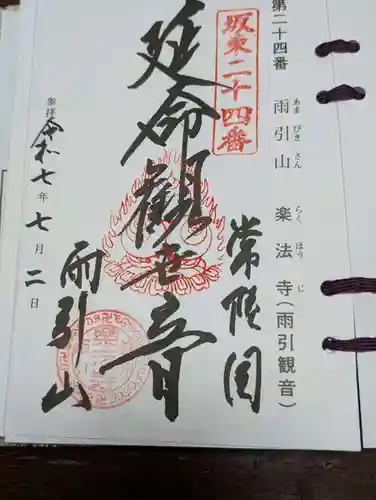 第二十四番　雨引山　楽法寺（雨引観音）
あまびきさん　らくほうじ
坂東二十四番
常陸国
延命観世音
雨引山
参拝 令和七年七月二日